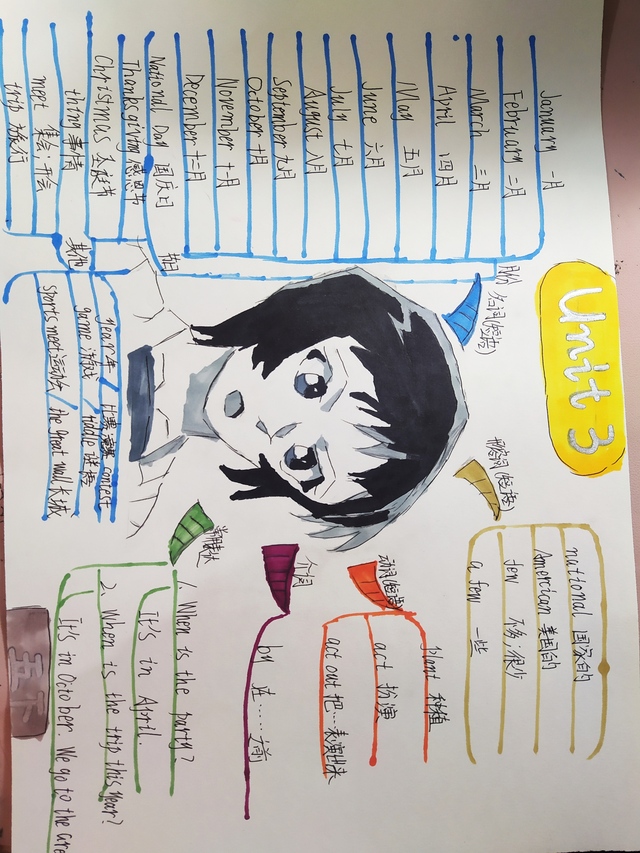 Unit 3
月份
名词(短语)
January 一月
February 二月
March 三月
April 四月
May 五月
June 六月
July 七月
August 八月
September 九月
October 十月
November 十一月
December 十二月
节日
National Day 国庆日
Thanksgiving 感恩节
Christmas 圣诞节
其他
thing 事情
meet 集会;开会
trip 旅行
year 年 / 比赛 contest
game 游戏 / riddle 谜语
sports meet 运动会 / the great wall 长城
形容词(短语)
national 国家的
American 美国的
few 不多;很少
a few 一些
动词(短语)
plant 种植
act 扮演
act out 把…表演出来
介词
by 在……之前
常用表达
1. When is the party?
It's in April.
2. When is the trip this year?
It's in October. We go to the
五下